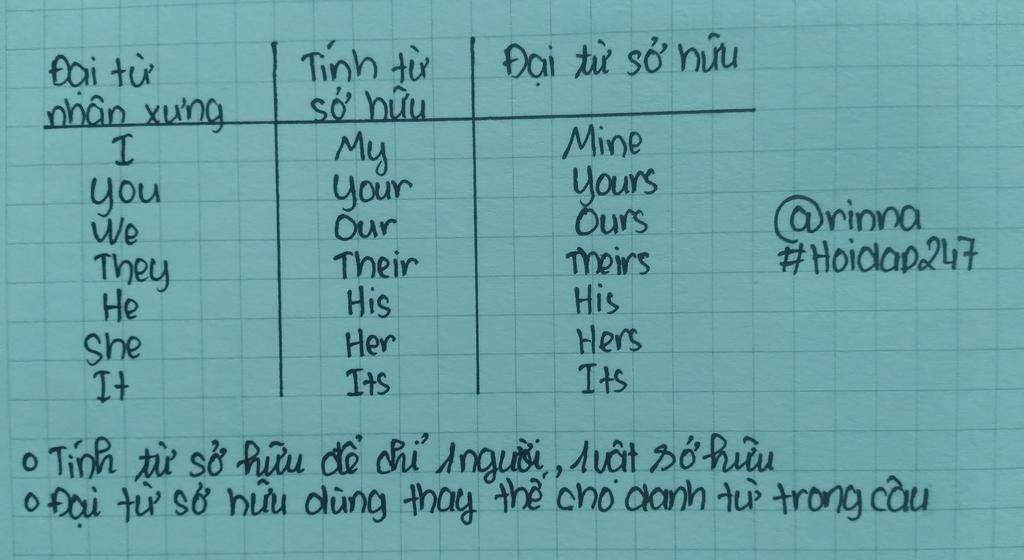 Đại từ nhân xưng | Tính từ sở hữu | Đại từ sở hữu
I | My | Mine
you | your | yours
We | Our | Ours
They | Their | Theirs
He | His | His
She | Her | Hers
It | Its | Its
@rinna
#Hoidap247
o Tính từ sở hữu để chỉ 1 người, 1 vật sở hữu
o Đại từ sở hữu dùng thay thế cho danh từ trong câu